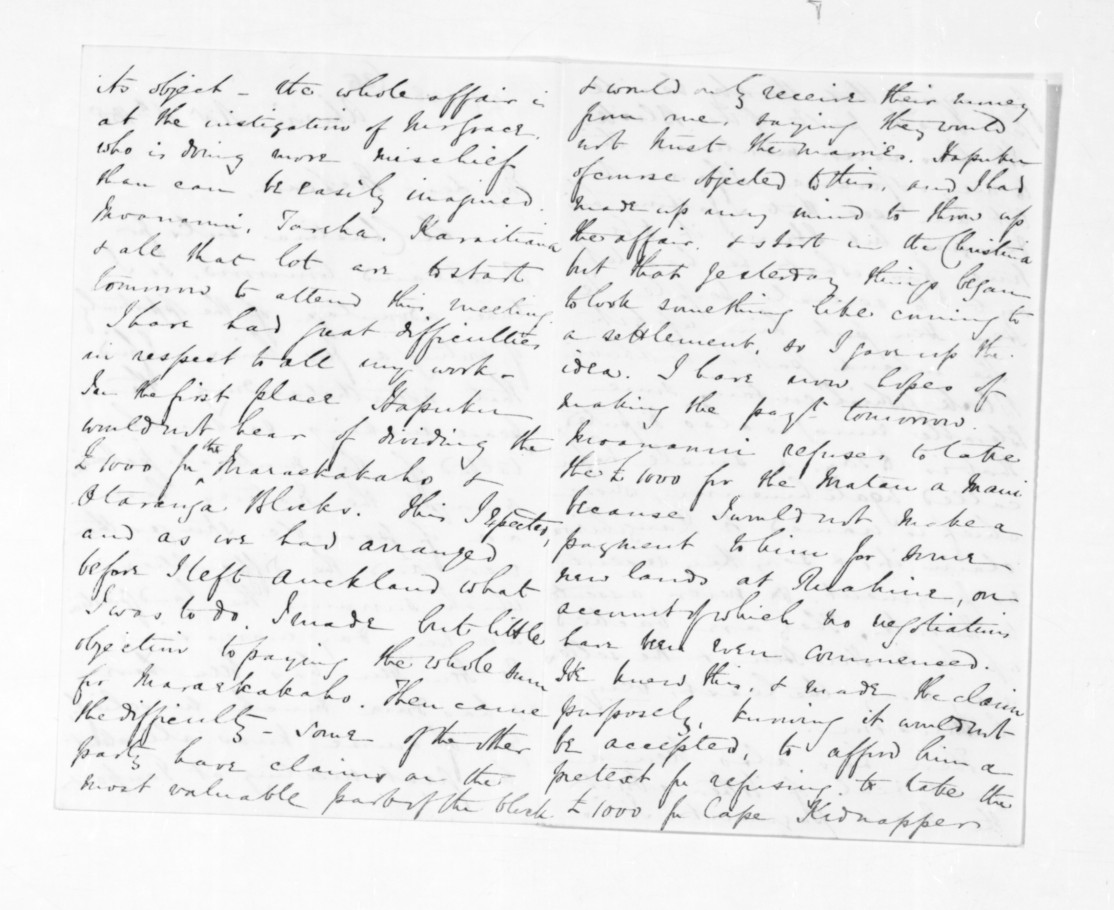 its object – the whole affair is
at the instigation of Mr Grace,
who is doing more mischief
than can be easily imagined.
Moananui, Tareha, Karaitiana
& all that lot are to start
tomorrow to attend this meeting.
I have had great difficulties
in respect to all my work –
In the first place Hapuku
would not hear of dividing the
£1000 for the Maraekakaho &
Otaranga Blocks. This I expected,
and as we had arranged
before I left Auckland what
I was to do, I made but little
objection to paying the whole sum
for Maraekakaho. Then came
the difficulty – Some of the other
party have claims on the
most valuable part of the block
& would only receive their money
from me, saying they would
not trust the maories. Hapuku
of course objected to this, and I had
made up my mind to throw up
the affair, & start in the Christina
but that yesterday things began
to look something like coming to
a settlement, so I gave up the
idea. I have now hopes of
making the payt. tomorrow.
Moananui refuses to take
the £1000 for the Matau a Maui
because I would not make a
payment to him for some
new lands at Ruahine, on
account of which no negotiations
have been even commenced.
He knew this, & made the claim
purposely, knowing it would not
be accepted, to afford him a
pretext for refusing to take the
£1000 for Cape Kidnappers